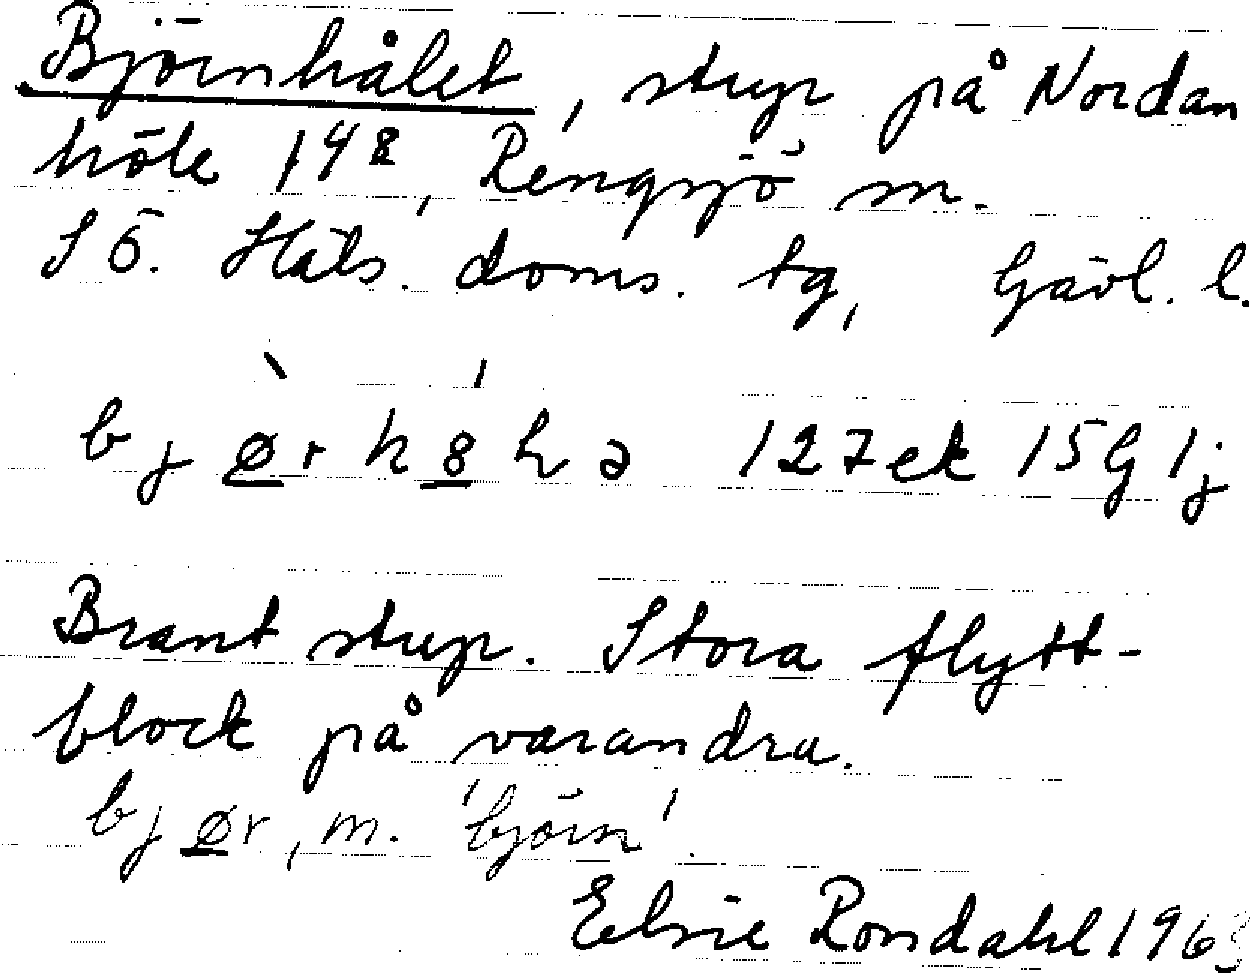 Björnhålet, stup på Nordan
höle 14⁸, Rengsjö m.
SÖ. Häls. doms. tg, Gävl. l.
bjø̱̀rhȣ̱́hə 127ek 15G 1j
Brant stup. Stora flytt-
block på varandra.
bjø̱r, m. 'björn'.
Elsie Rondahl 1963